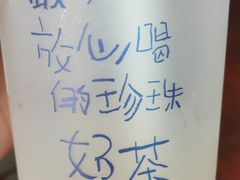 放心喝
的珍珠
奶茶